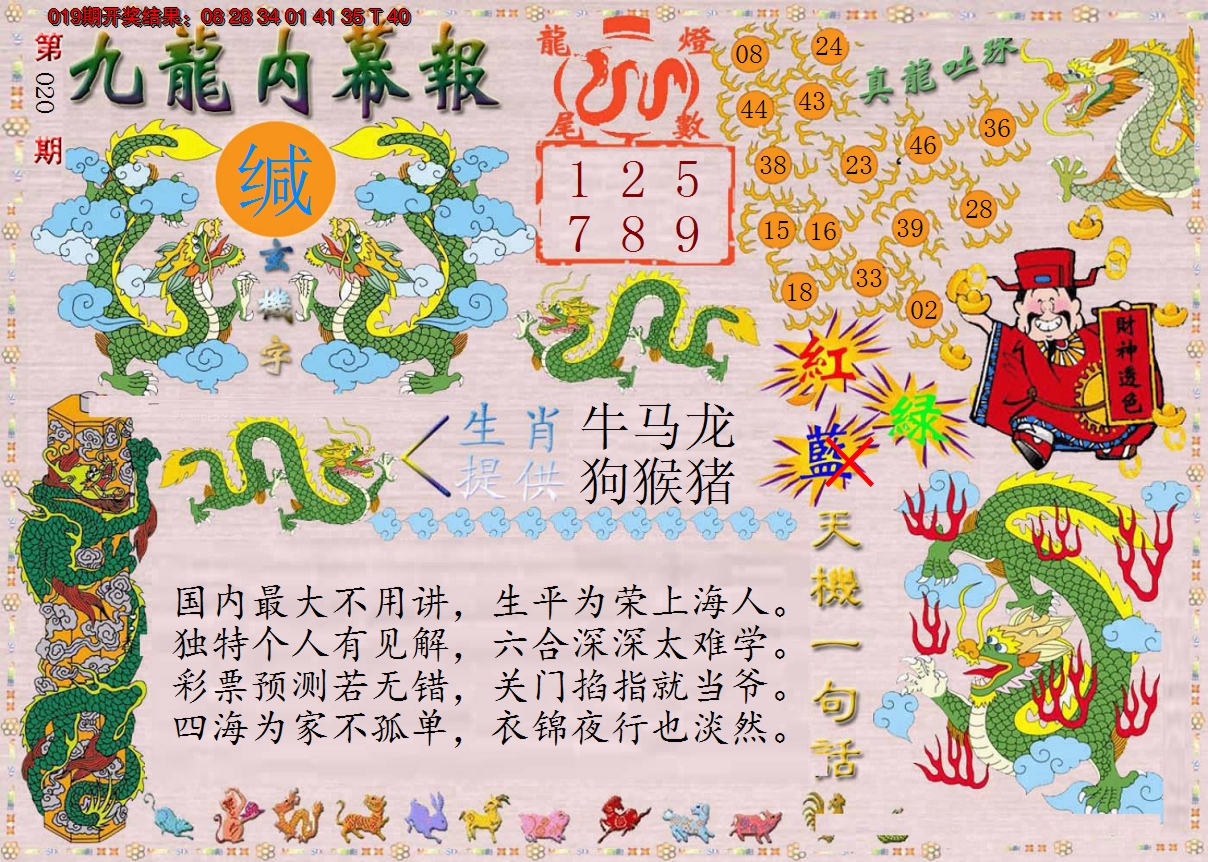 019期开奖结果：08 28 34 01 41 35 T 40
第020期
九龍内幕報
缄
玄機字
龍燈
尾數
1 2 5
7 8 9
真龍吐珠
08 24
44 43
38 23 46 36
15 16 39 28
18 33 02
財神透色
紅
綠
藍
生肖
提供
牛马龙
狗猴猪
天機一句话
国内最大不用讲，生平为荣上海人。
独特个人有见解，六合深深太难学。
彩票预测若无错，关门掐指就当爷。
四海为家不孤单，衣锦夜行也淡然。